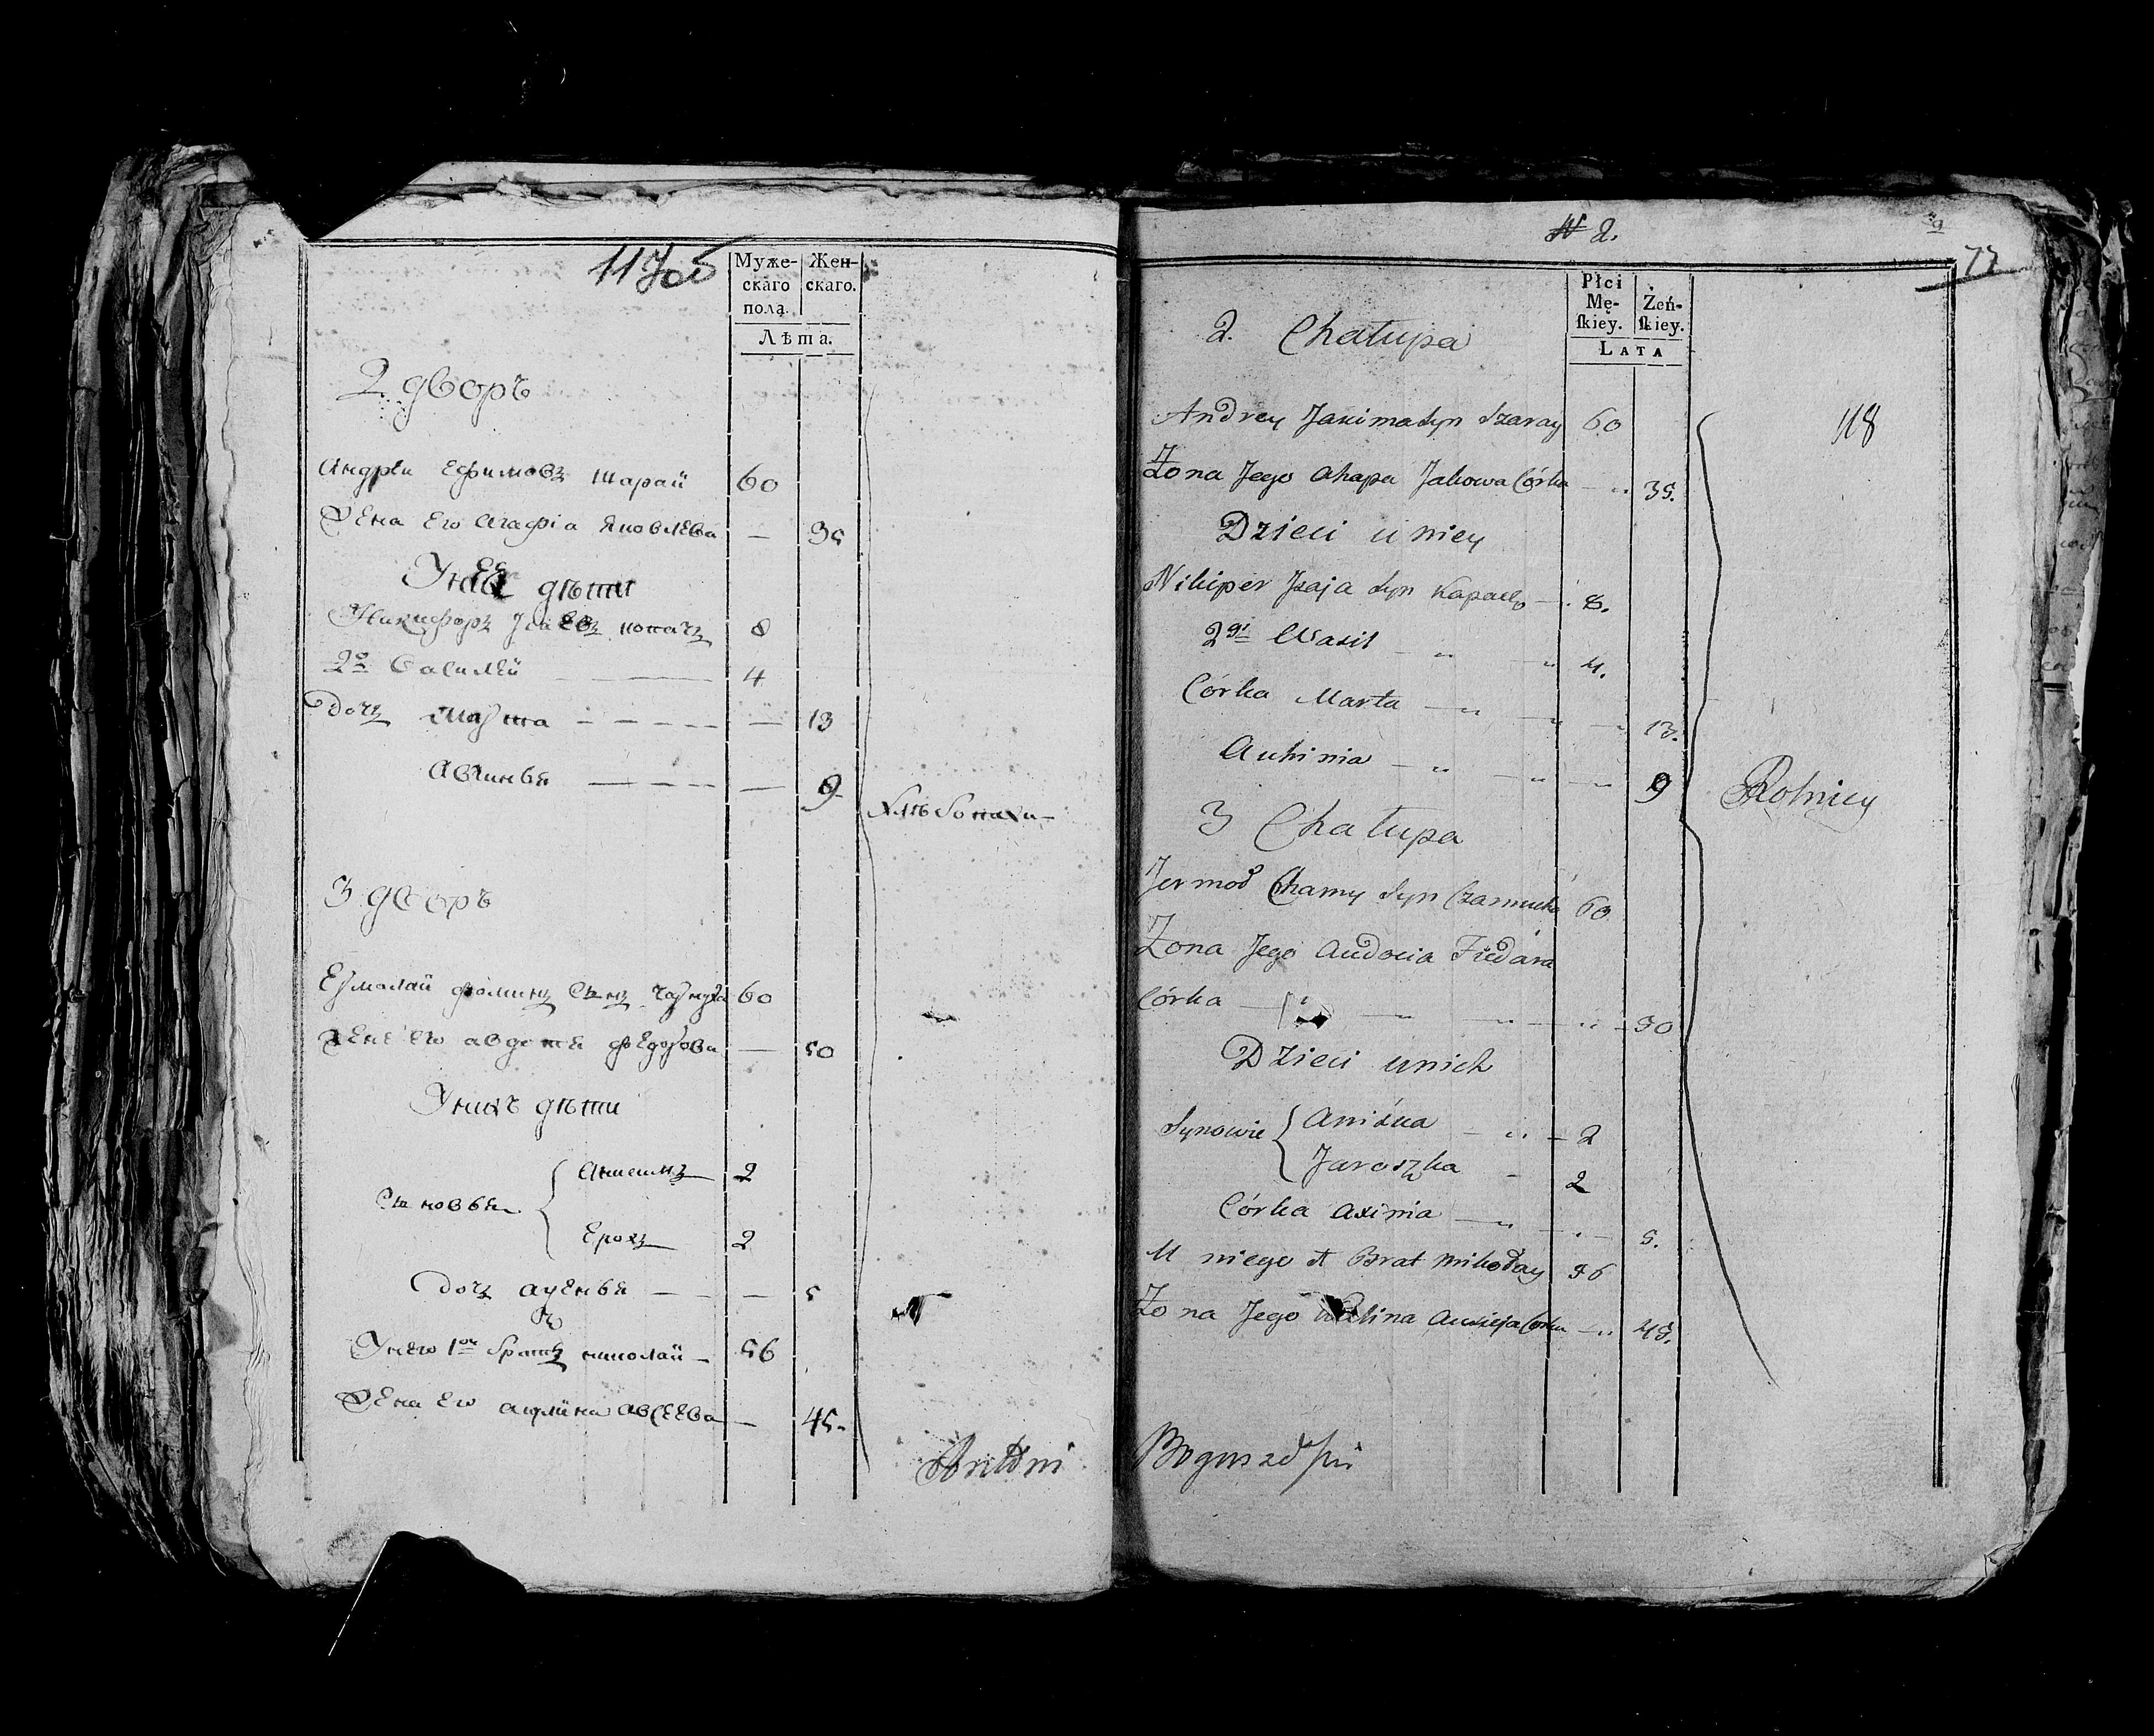 117об
Муже-
скаго
пола.
Жен-
скаго.
Лѣта.
2 дворъ
Андрѣи Ефимовъ Шарай 60
Жена Его Агафія Яковлева — 35
У нЕЕ дѣти
Никифоръ Исаевъ копачъ 8
2й Василѣй — 4
Дочъ Марта — — 13
Авгинья — — 9
Хлѣбопахи—
3 дворъ
Ермолай фоминъ Сынъ Чарнуха 60
Жена Его авдотя фЕдорова — 50
У нихъ дѣти
Сыновья { Анисимъ 2
Ерохъ 2
Дочъ аѯЕнья — — 5
У нЕго 1й братъ николай — 56
Жена Его акулина авсЕЕва — 45
Antoni
№ 2.
77
Płci
Mę-
skiey.
Żeń-
skiey.
LATA
2. Chałupa
118
Andrey Jakima Syn Szaray 60
Żona Jego Ahapa Jakowa Córka — 35.
Dzieci u niey
Nikiper Jsaja Syn Kapacz — 8.
2gi Wasil — 4.
Córka Marta — 13.
Auhinia — 9
Rolnicy
3 Chałupa
Jermoł Chamy Syn Czarnucha 60
Żona Jego Audocia Fiedara
Córka — 50
Dzieci u nich
Synowie { Aniśka — 2
Jaroszka — 2
Córka Axinia — 5.
U niego 1 Brat Mikołay 56
Żona Jego Kulina Auxieja Córka — 45.
Boguszewski